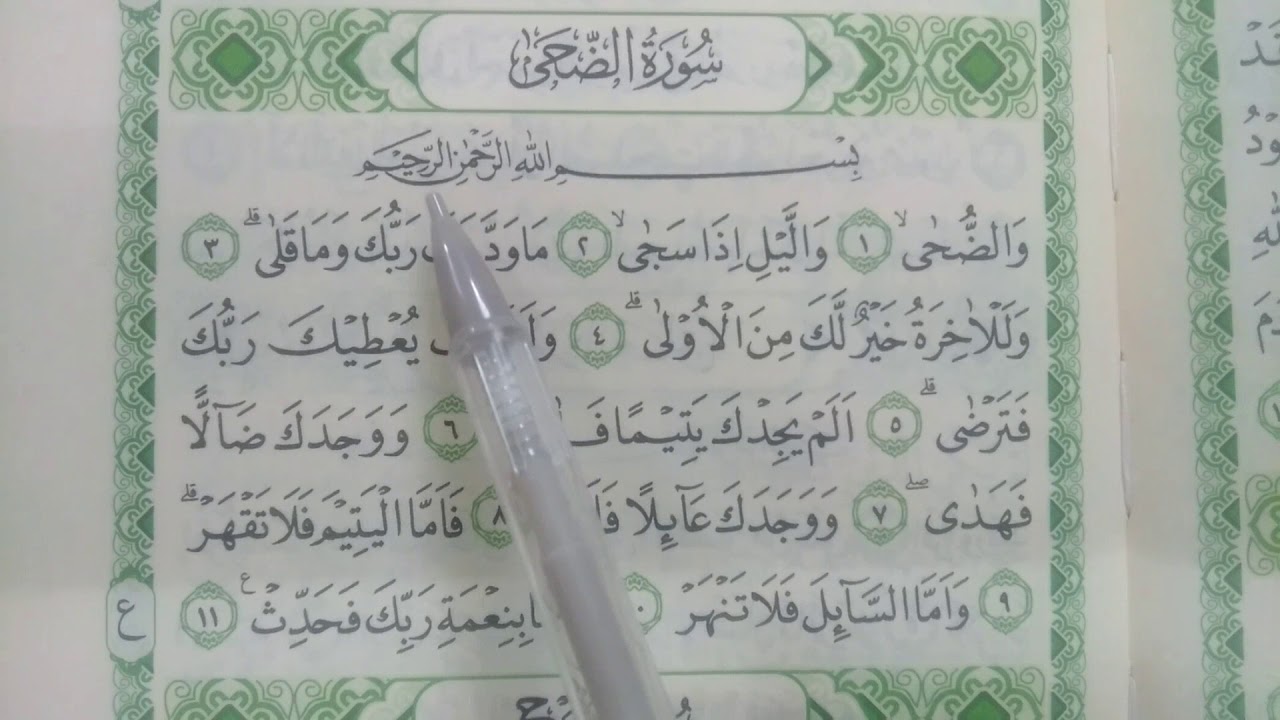 سُورَةُ الضُّحَى
بِسْمِ اللهِ الرَّحْمٰنِ الرَّحِيْمِ
وَالضُّحٰىۙ ١ وَالَّيْلِ اِذَا سَجٰىۙ ٢ مَا رَبُّكَ وَمَا قَلٰىۗ ٣
وَلَلْاٰخِرَةُ خَيْرٌ لَّكَ مِنَ الْاُوْلٰىۗ ٤ يُعْطِيْكَ رَبُّكَ
فَتَرْضٰىۗ ٥ اَلَمْ يَجِدْكَ يَتِيْمًا ٦ وَوَجَدَكَ ضَاۤلًّا
فَهَدٰىۖ ٧ وَوَجَدَكَ عَاۤىِٕلًا ٨ فَاَمَّا الْيَتِيْمَ فَلَا تَقْهَرْۗ
٩ وَاَمَّا السَّاۤىِٕلَ فَلَا تَنْهَرْ بِنِعْمَةِ رَبِّكَ فَحَدِّثْ ࣖ ١١
ع